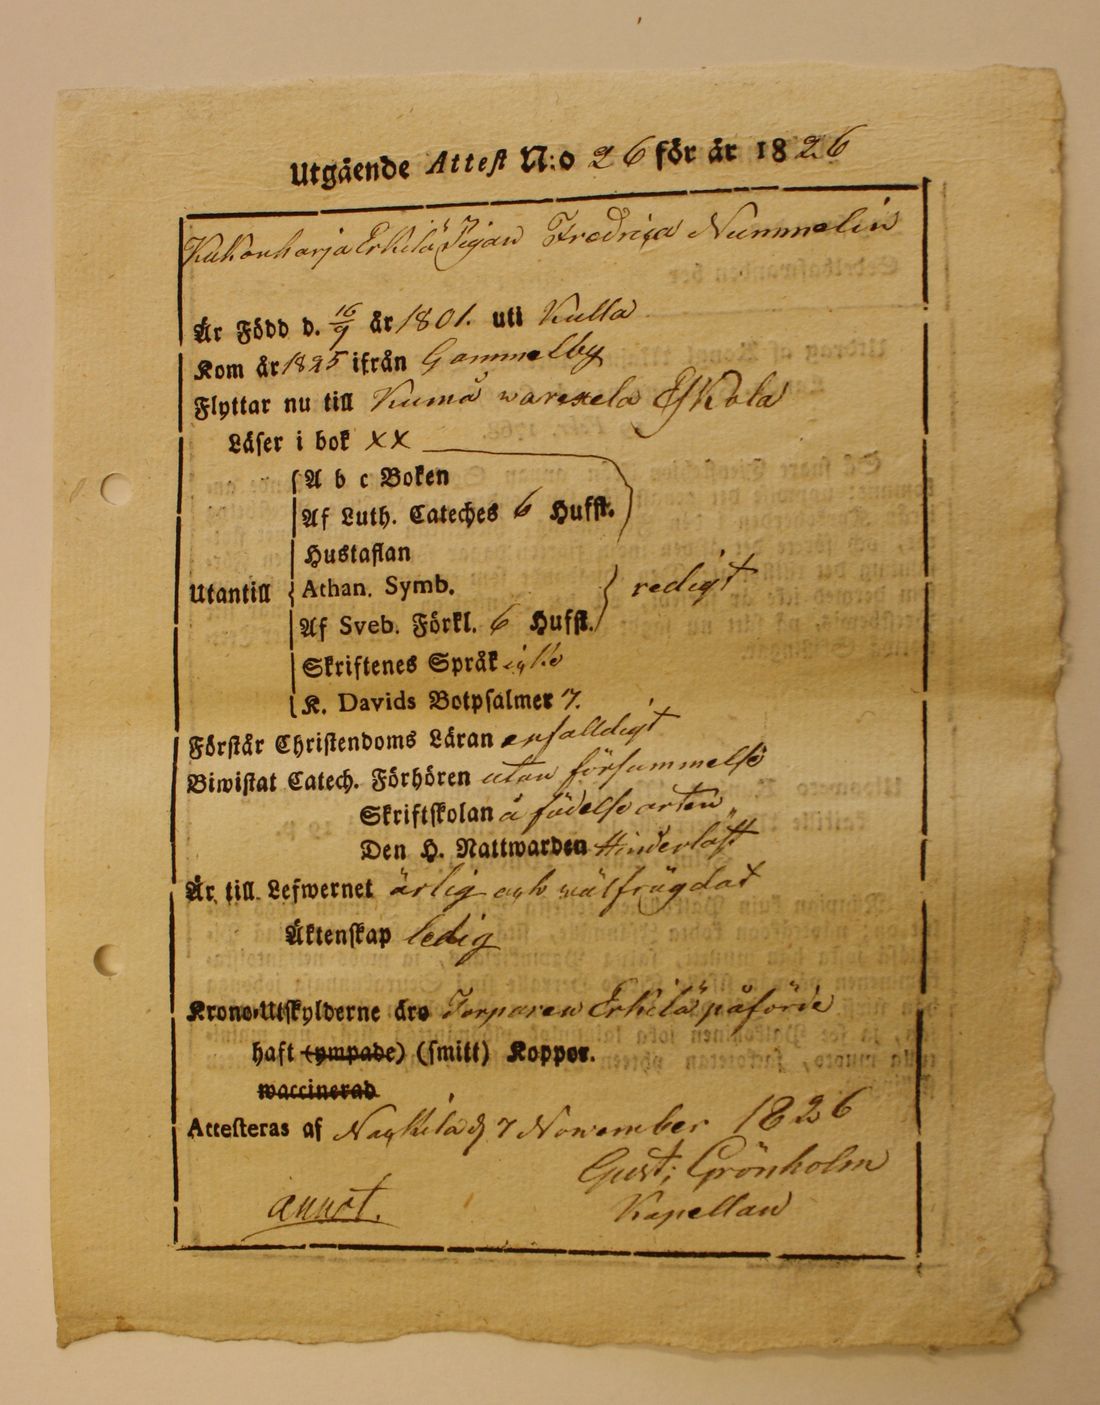 Utgående Attest N:o 26 för år 1826
Kukonharja Erkilä Pigan Fredrica Nummelin
Är Född d. 16/9 år 1801. uti Kulla
Kom år 1825 ifrån Gammelby
Flyttar nu till Kumå warexela Eskola
Läser i bok xx
A b c Boken
Af Luth. Cateches 6 Hufst.
Hustaflan
Utantill Athan. Symb. redigt
Af Sveb. Förkl. 6 Hufst.
Skriftenes Språk icke
K. Davids Botpsalmer 7.
Förstår Christendoms Läran enfalldigt
Biwistat Catech. Förhören utan försummelse
Skriftskolan å födelse orten
Den H. Nattwarden Hinderlöst
Är till Lefwernet ärlig och wälfrägdat
Äktenskap ledig
Krono-Utskylderne äro Torparen Erkilä påförde
haft (ympade) (smitt) Koppor.
waccinerad
Attesteras af Nackila d 7 November 1826
Gust: Grönholm
annot. Kapellan